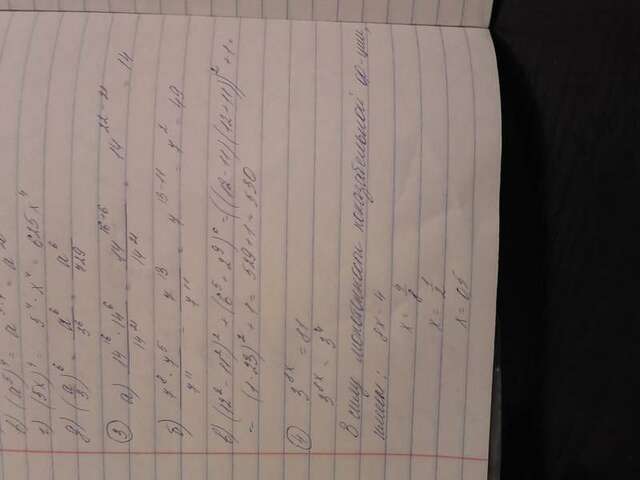 в) (a⁵)⁴ = a⁵·⁴ = a²⁰
г) (5x)⁴ = 5⁴ · x⁴ = 625x⁴
д) (a/3)⁶ = a⁶/3⁶ = a⁶/729
③ а) 14¹⁶ · 14⁶ / 14²¹ = 14¹⁶⁺⁶ / 14²¹ = 14²²⁻²¹ = 14
б) 7⁸ · 7⁵ / 7¹¹ = 7¹³ / 7¹¹ = 7¹³⁻¹¹ = 7² = 49
в) (12² - 11²)² + (6⁵ + 2⁹)⁰ = ((12-11)(12+11))² + 1 =
= (1·23)² + 1 = 529 + 1 = 530
④ 3⁸ˣ = 81
3⁸ˣ = 3⁴
В силу монотонности показательной ф-ции,
имеем:
8x = 4
x = 4/8
x = 1/2
x = 0,5